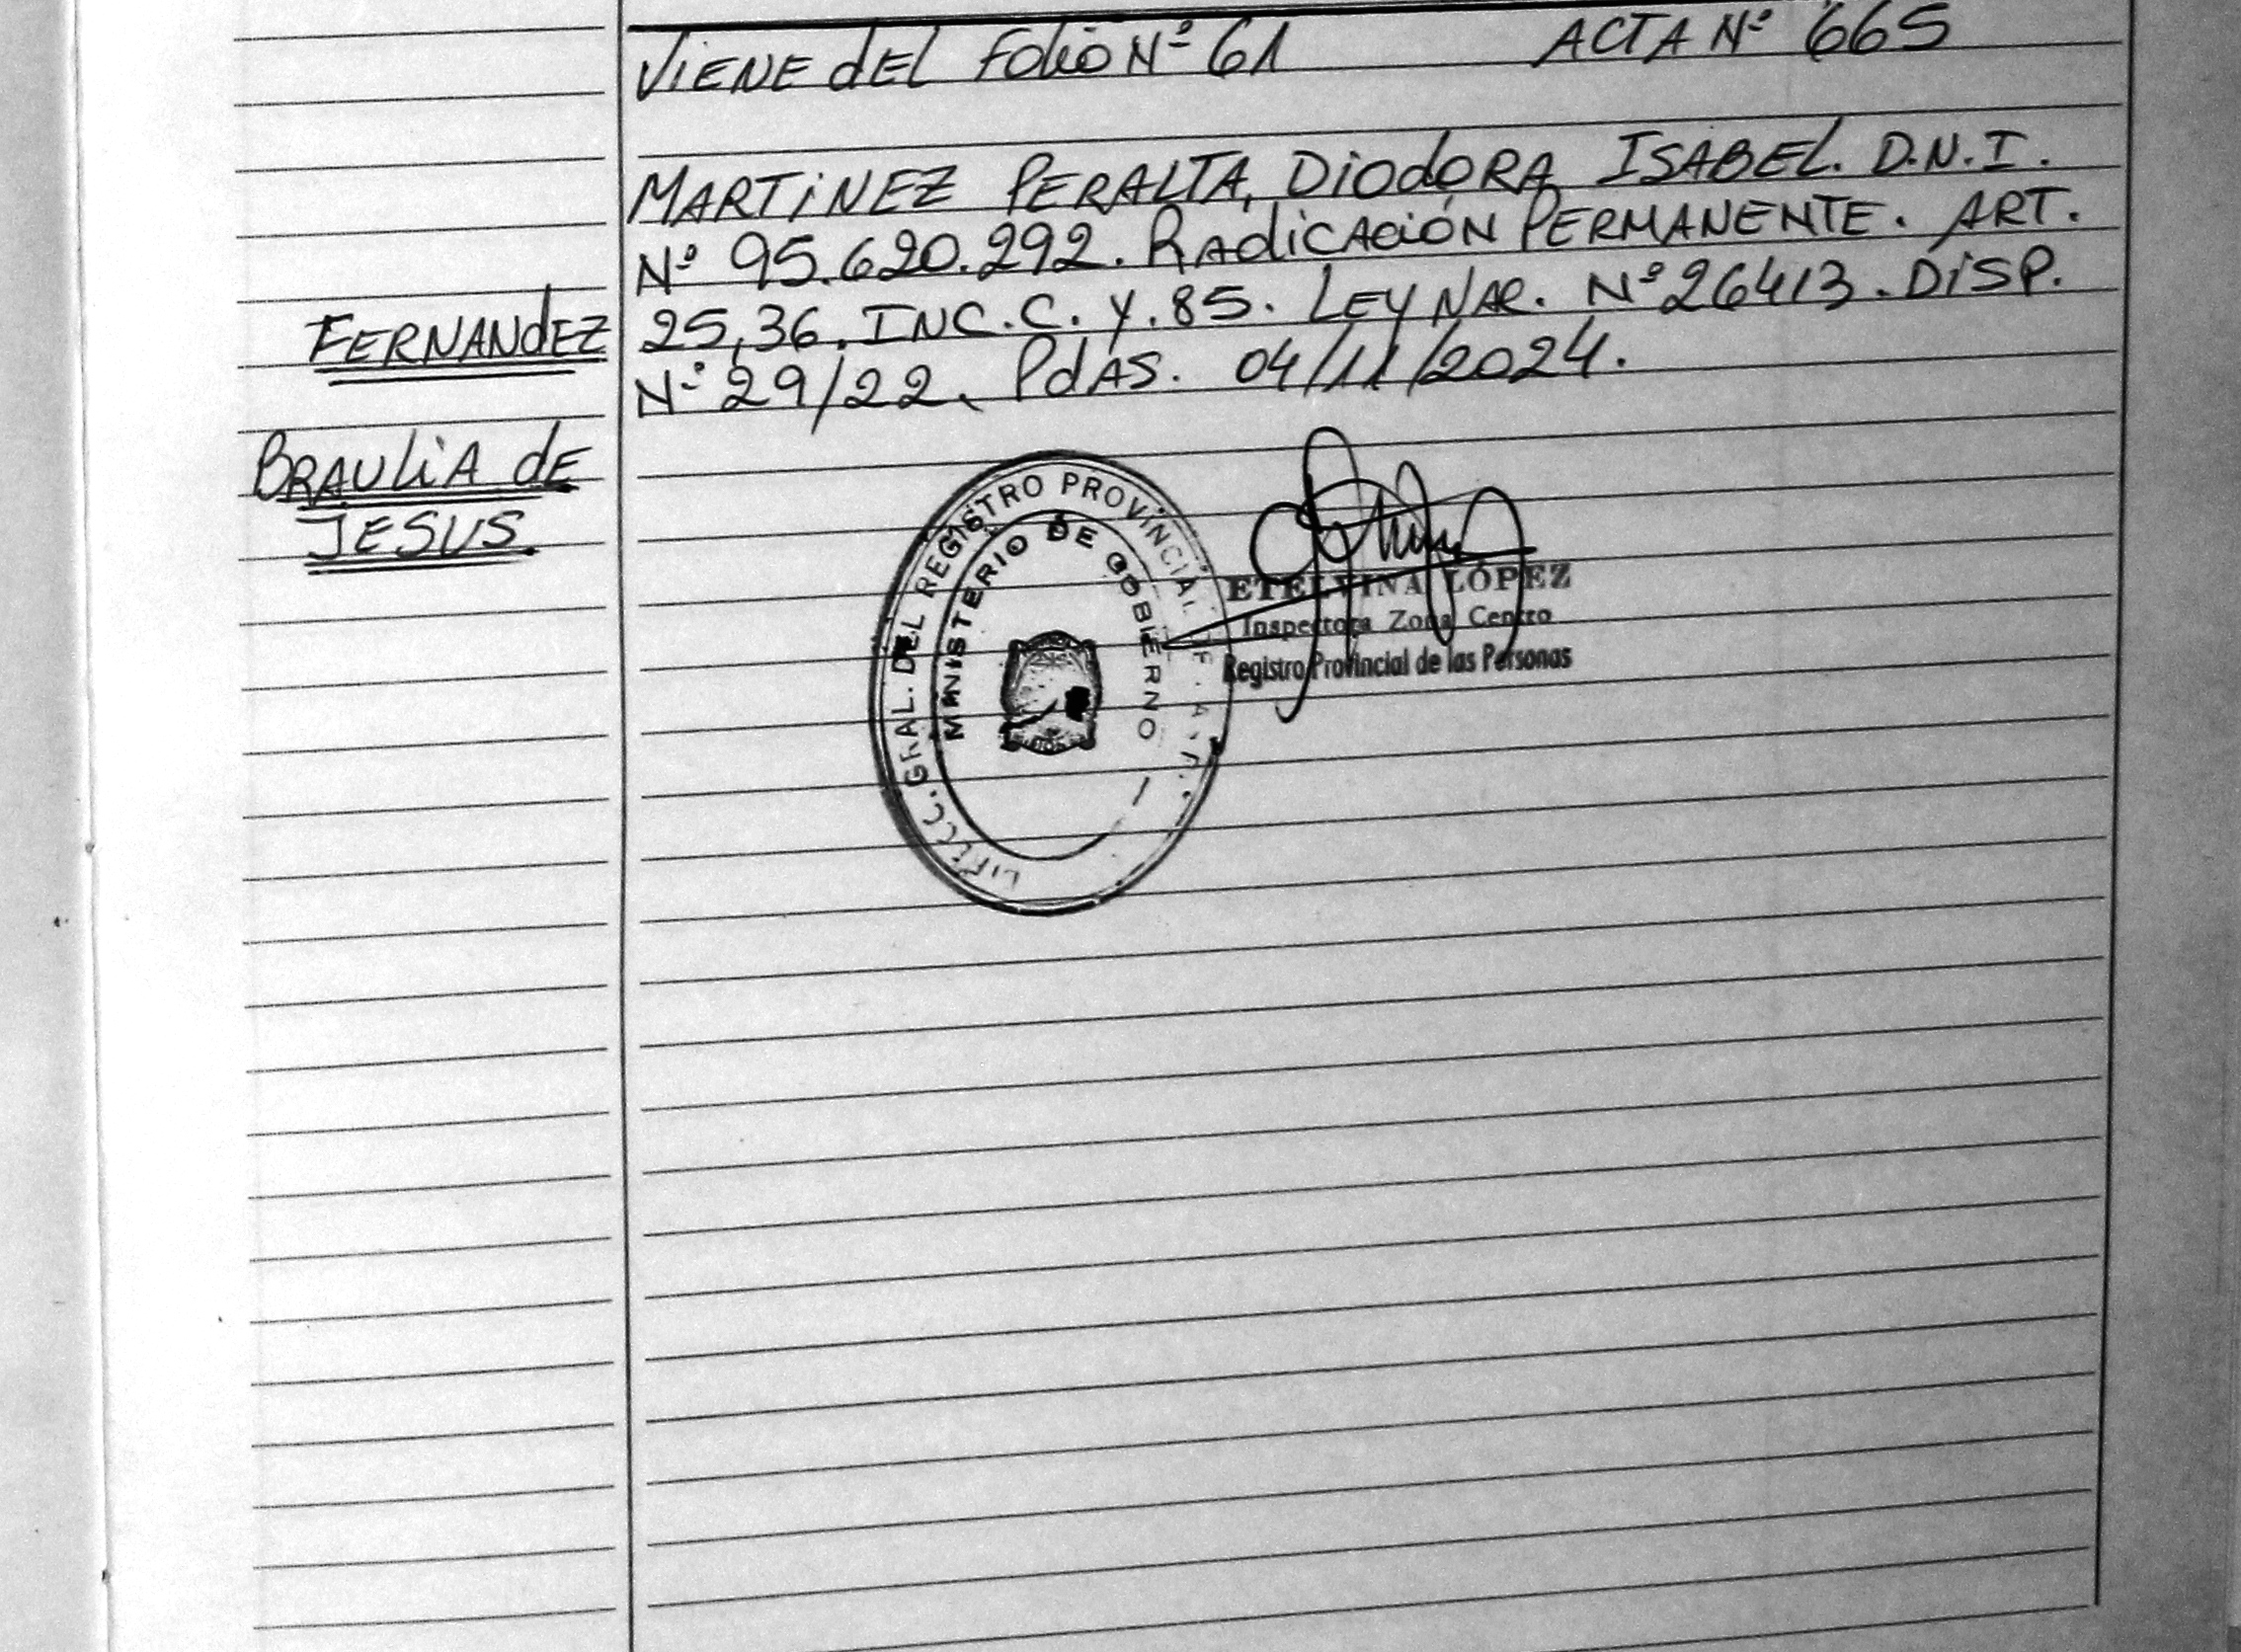 VIENE dEL Folio Nº 61 ACTA Nº 665
MARTINEZ PERALTA, DiodORA ISABEL. D.N.I.
Nº 95.620.292. RAdicación PERMANENTE. ART.
25,36. INC.C. Y.85. LEY NAC. Nº26413. DISP.
Nº 29/22. PdAS. 04/11/2024.
FERNANdEZ
BRAULiA dE
JESUS.
GRAL. DEL REGISTRO PROVINCIAL
MINISTERIO DE GOBIERNO
ETELVINA LÓPEZ
Inspectora Zona Centro
Registro Provincial de las Personas